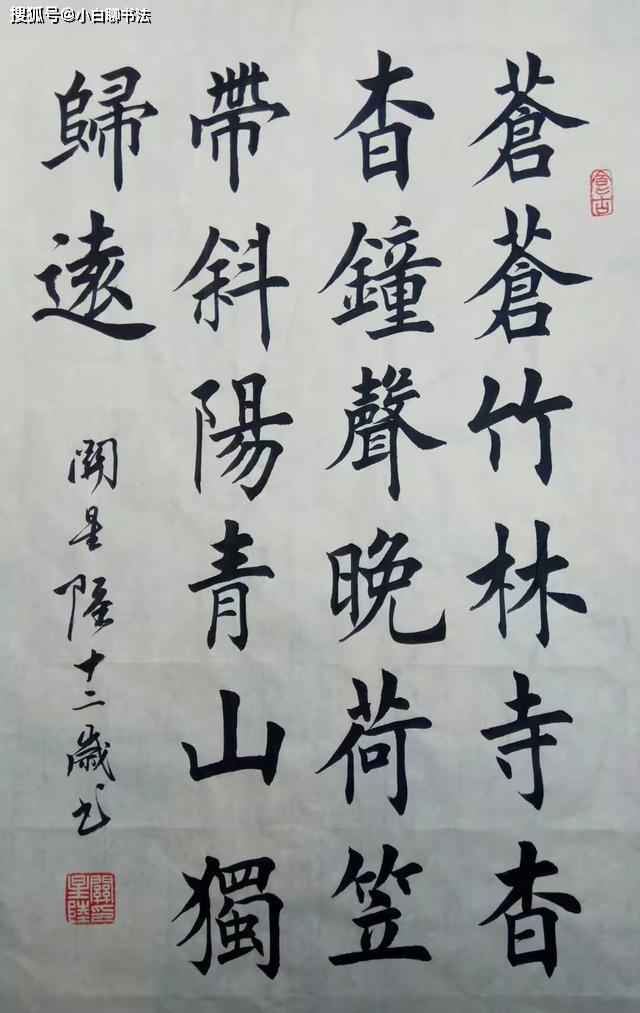 搜狐号@小白聊书法
蒼蒼竹林寺杳
杳鐘聲晚荷笠
帶斜陽青山獨
歸遠
關星陸十二歲书